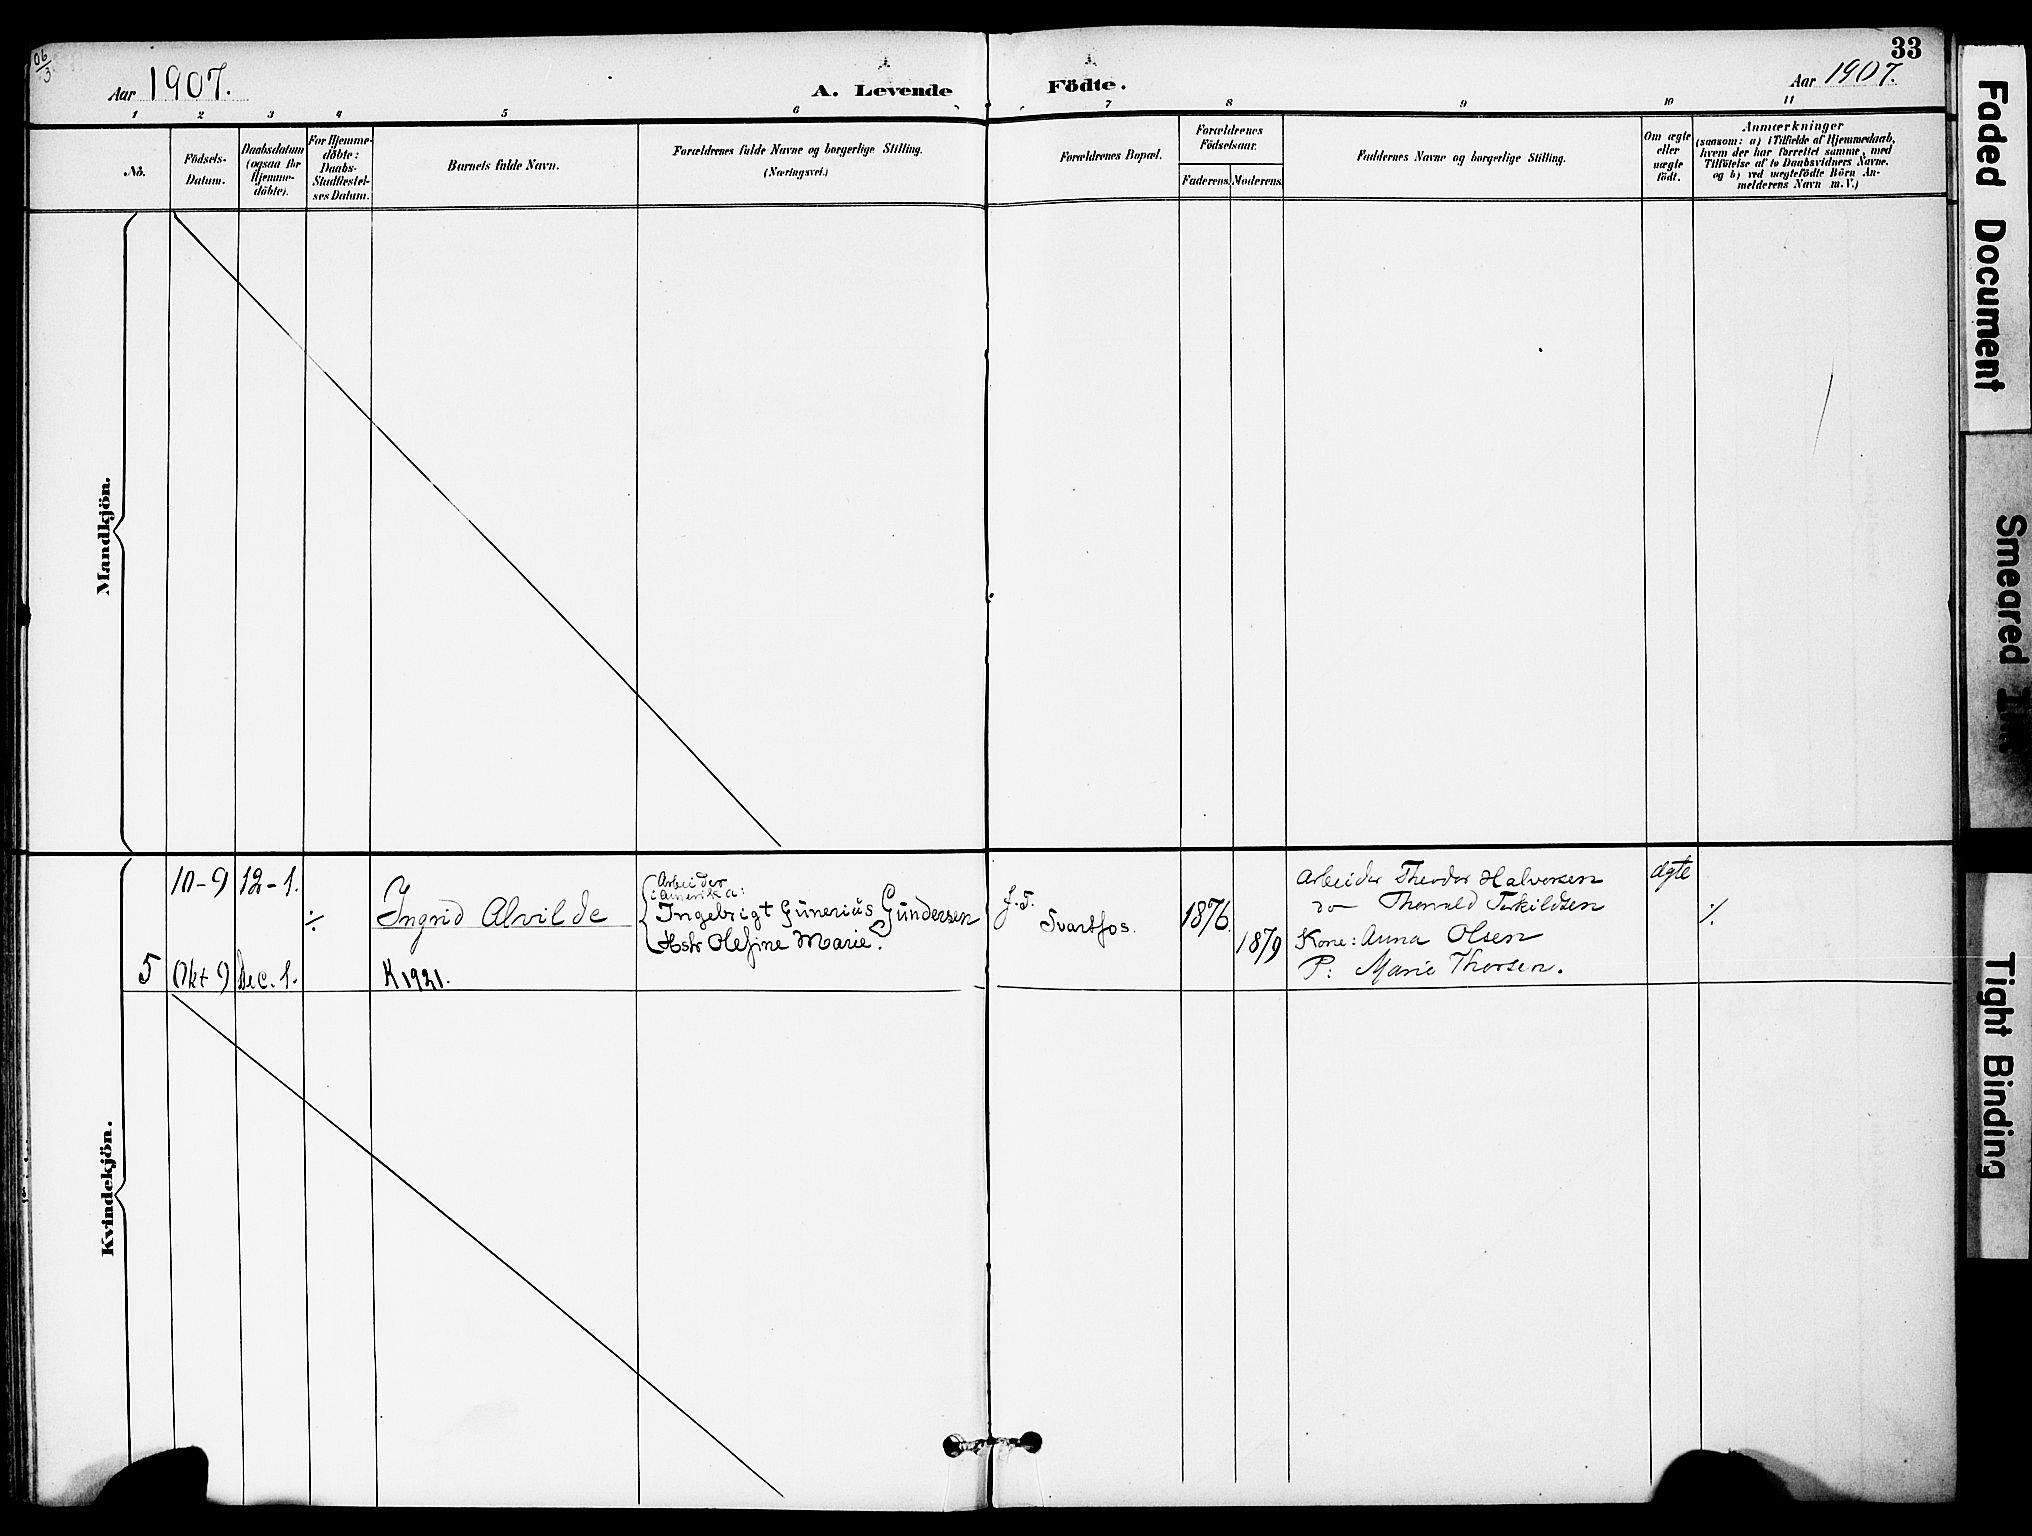 06/3
Aar 1907.
A. Levende
Födte.
33
Aar 1907.
1 2 3 4 5 6 7 8 9 10 11
No.
Födsels-
Datum.
Daabsdatum
(ogsaa for
Hjemme-
döbte).
For Hjemme-
döbte:
Daabs-
Stadfæstel-
ses Datum.
Barnets fulde Navn.
Forældrenes fulde Navne og borgerlige Stilling.
(Næringsvei.)
Forældrenes Bopæl.
Forældrenes
Födselsaar.
Faderens. Moderens.
Faddernes Navne og borgerlige Stilling.
Om ægte
eller
uægte
födt.
Anmærkninger
(saasom: a) i Tilfælde af Hjemmedaab,
hvem der har forrettet samme, med
Tilföielse af to Daabsvidners Navne.
og b) ved uægtefödte Börn An-
melderens Navn m. V.)
Mandkjön.
Kvindekjön.
5
10-9
Okt 9
12-1.
Dec. 1.
÷
Ingrid Alvilde
K 1921.
Arbeider
i Amerika:
Ingebrigt Gunerius Gundersen
Hstr Olefine Marie.
J. F.
Svartfos.
1876.
1879
Arbeider Theodor Halvorsen
do Thorvald Terkildsen
Kone: Anna Olsen
P: Marie Thorsen.
ægte
÷
Faded Document
Smeared Ink
Tight Binding